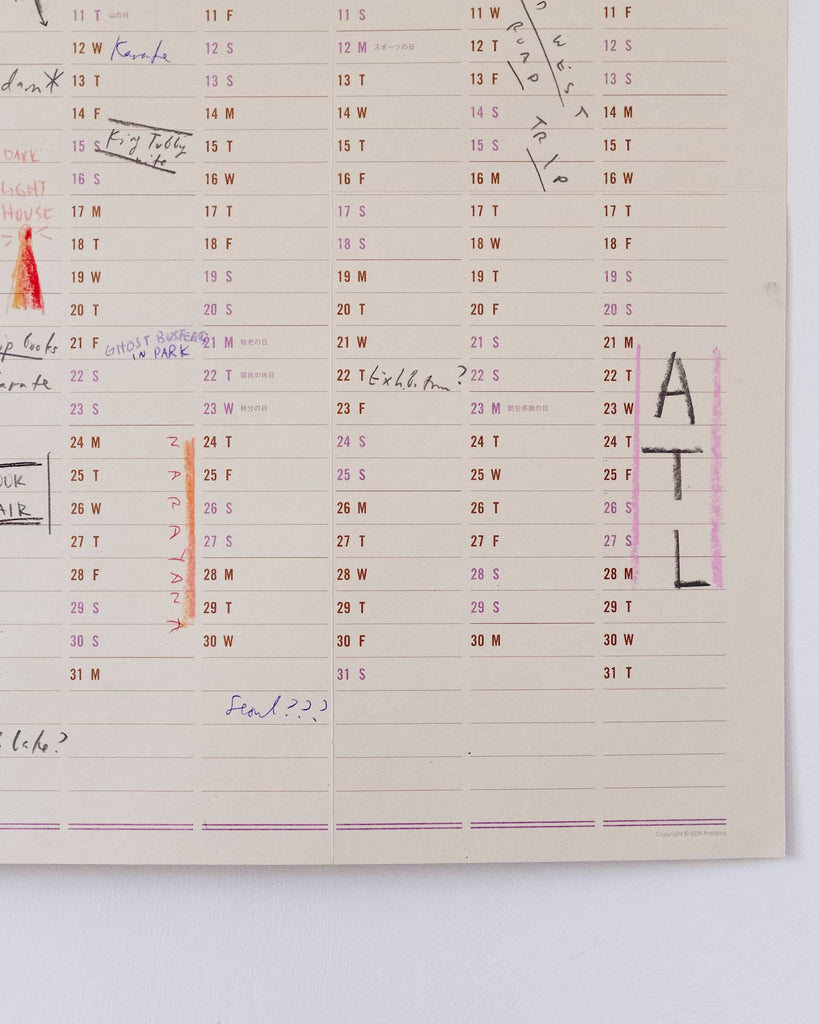 dam*
DARK
LIGHT
HOUSE
books
arate
OOK
AIR
lake?
11 T 山の日
12 W Karate
13 T
14 F
15 S King Tubby
nite
16 S
17 M
18 T
19 W
20 T
21 F GHOST BUSTERS
IN PARK
22 S
23 S
24 M
25 T
26 W
27 T
28 F
29 S
30 S
31 M
11 F
12 S
13 S
14 M
15 T
16 W
17 T
18 F
19 S
20 S
21 M 敬老の日
22 T 国民の休日
23 W 秋分の日
24 T
25 F
26 S
27 S
28 M
29 T
30 W
Seoul???
11 S
12 M スポーツの日
13 T
14 W
15 T
16 F
17 S
18 S
19 M
20 T
21 W
22 T Exhibition?
23 F
24 S
25 S
26 M
27 T
28 W
29 T
30 F
31 S
11 W
12 T
13 F
14 S
15 S
16 M
17 T
18 W
19 T
20 F
21 S
22 S
23 M 勤労感謝の日
24 T
25 W
26 T
27 F
28 S
29 S
30 M
WEST
ROAD
TRIP
11 F
12 S
13 S
14 M
15 T
16 W
17 T
18 F
19 S
20 S
21 M
22 T
23 W
24 T
25 F
26 S
27 S
28 M
29 T
30 W
31 T
ATL
Copyright © 2026 Postalco